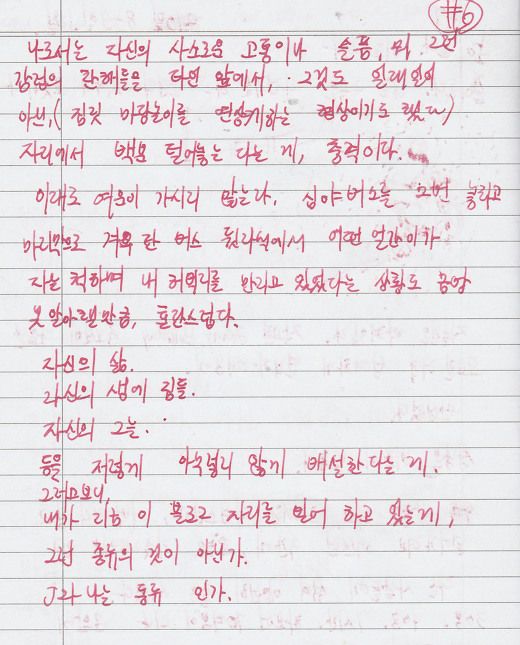 #6
나로서는 자신의 사소로운 고통이나 슬픔, 뭐, 그런
감정의 잔해들을 타인 앞에서, 그것도 일대일의
아닌, ( 짐짓 마당놀이를 연상케하는 형상이기도 했다)
자리에서 백묘 털어놓는 다는 게, 충격이다.
이대로 여운이 가시리 않는다. 심야버스를 2번 놓치고
마지막으로 겨우 탄 버스 뒷좌석에서 어떤 얼간이가
자는 척하며 내 허벅지를 만지고 있었다는 상황도 몽땅
못 알아챌만큼, 혼란스럽다.
자신의 삶.
자신의 생에 림들.
자신의 그늘.
등을 저렇게 아숙덜리 않게 배설한다는 게.
그러고보니,
내가 지금 이 블로그 자리를 빌어 하고 있는게,
그런 종류의 것이 아닌가.
J와 나는 동류 인가.